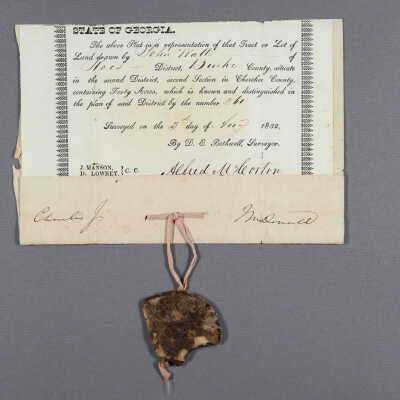 STATE OF GEORGIA.
The above Plat is a representation of that Tract or Lot of
Land drawn by John of
District, Burke County, situate
in the second District, second Section in Cherokee County,
containing Forty Acres, which is known and distinguished in
the plan of said District by the number
Surveyed on the day of 1832,
By D. E. Bothwell, Surveyor.
J. MANSON,
D. LOWREY, } C. C.
Alfred
Charles J. McDonald